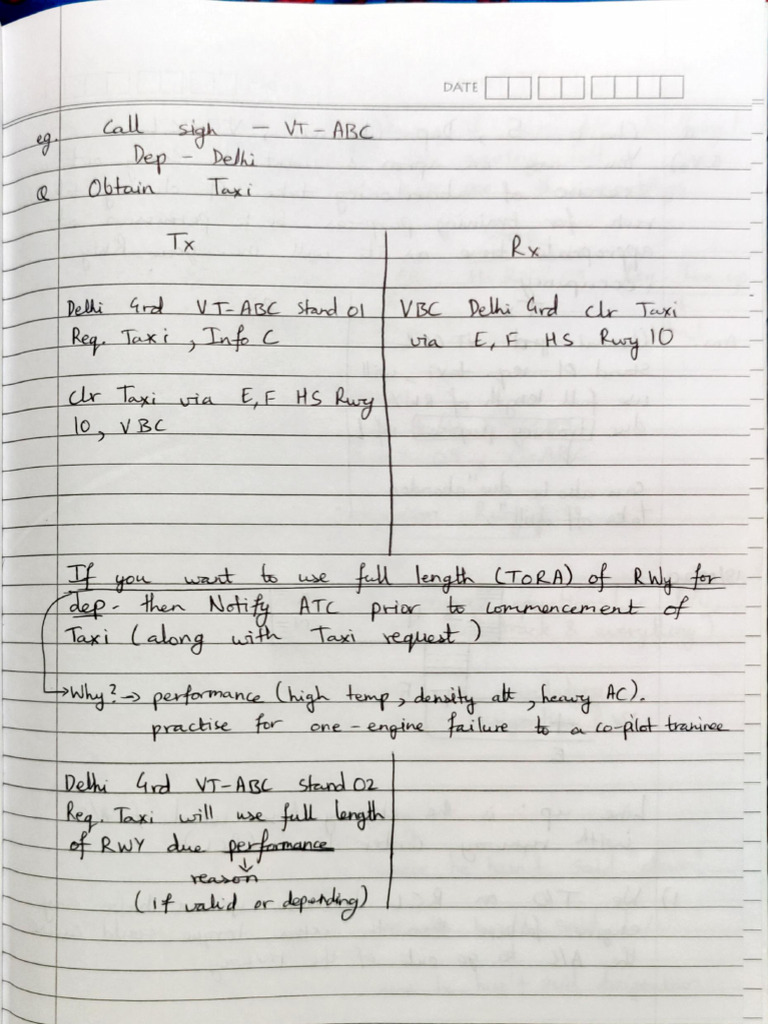 DATE
eg. Call sigh - VT-ABC
Dep - Delhi
Q Obtain Taxi
Tx
Rx
Delhi Grd VT-ABC stand 01
Req. Taxi, Info C
VBC Delhi Grd clr Taxi
via E, F HS Rwy 10
Clr Taxi via E, F HS Rwy
10, VBC
If you want to use full length (TORA) of RWy for
dep - then Notify ATC prior to commencement of
Taxi (along with Taxi request)
Why? → performance (high temp, density alt, heavy AC).
practise for one-engine failure to a co-pilot traninee
Delhi Grd VT-ABC stand 02
Req. Taxi will use full length
of RWY due performance
↓
reason
(if valid or depending)